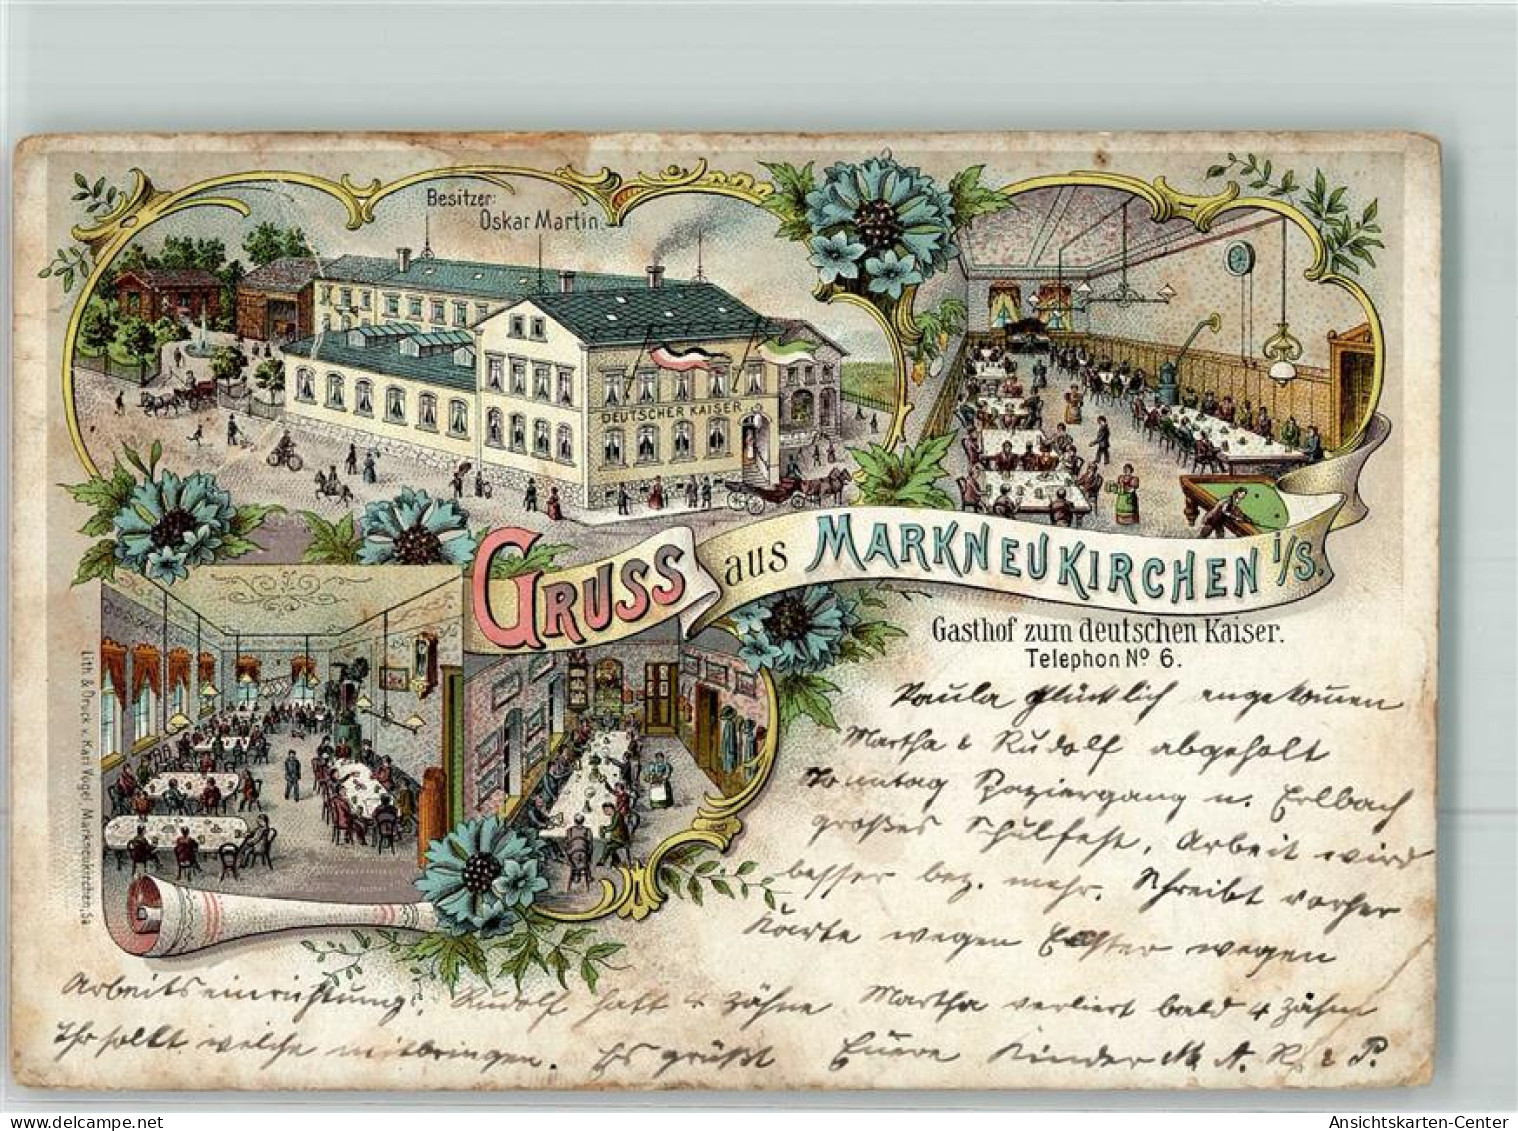 Besitzer:
Oskar Martin.
DEUTSCHER KAISER
GRUSS aus MARKNEUKIRCHEN i/S.
Gasthof zum deutschen Kaiser.
Telephon No 6.
Lith. & Druck v. Karl Vogel Markneukirchen, Sa.
Paula glücklich angekommen
Martha & Rudolf abgeholt
Sonntag Spaziergang n. Erlbach
großes Schulfest, Arbeit wird
besser bez. mehr. Schreibt vorher
Karte wegen Elster wegen
Arbeitseinrichtung. Rudolf hatt 4 Zähne Martha verliert bald 4 Zähne
Ihr sollt welche mitbringen. Es grüßt Euere Kinder M. A. R. & P.
Ansichtskarten-Center